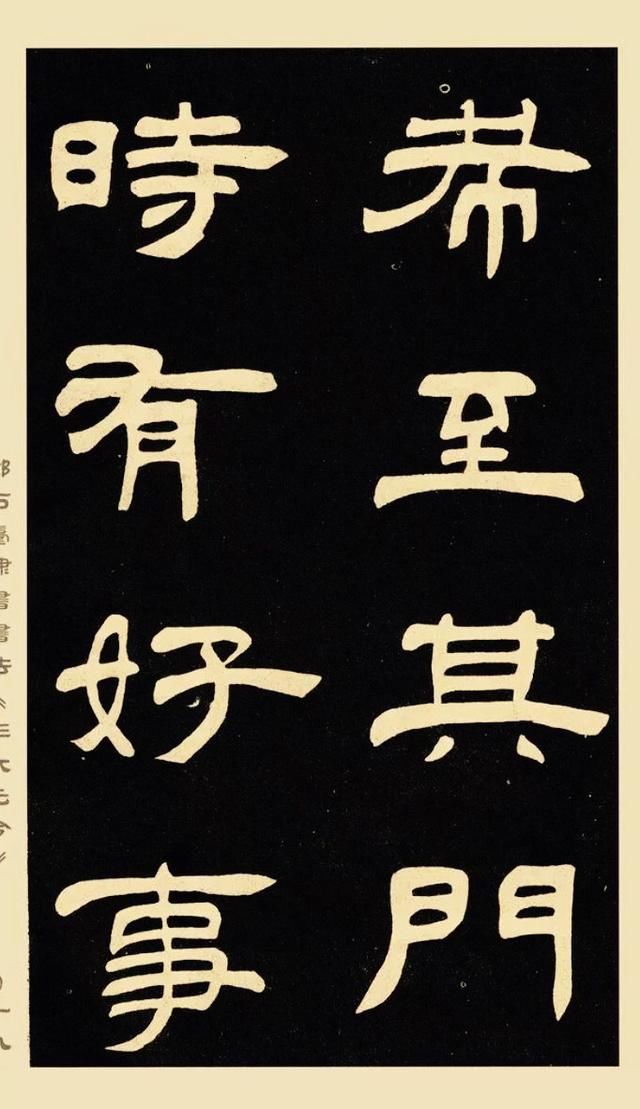 希至其門
時有好事